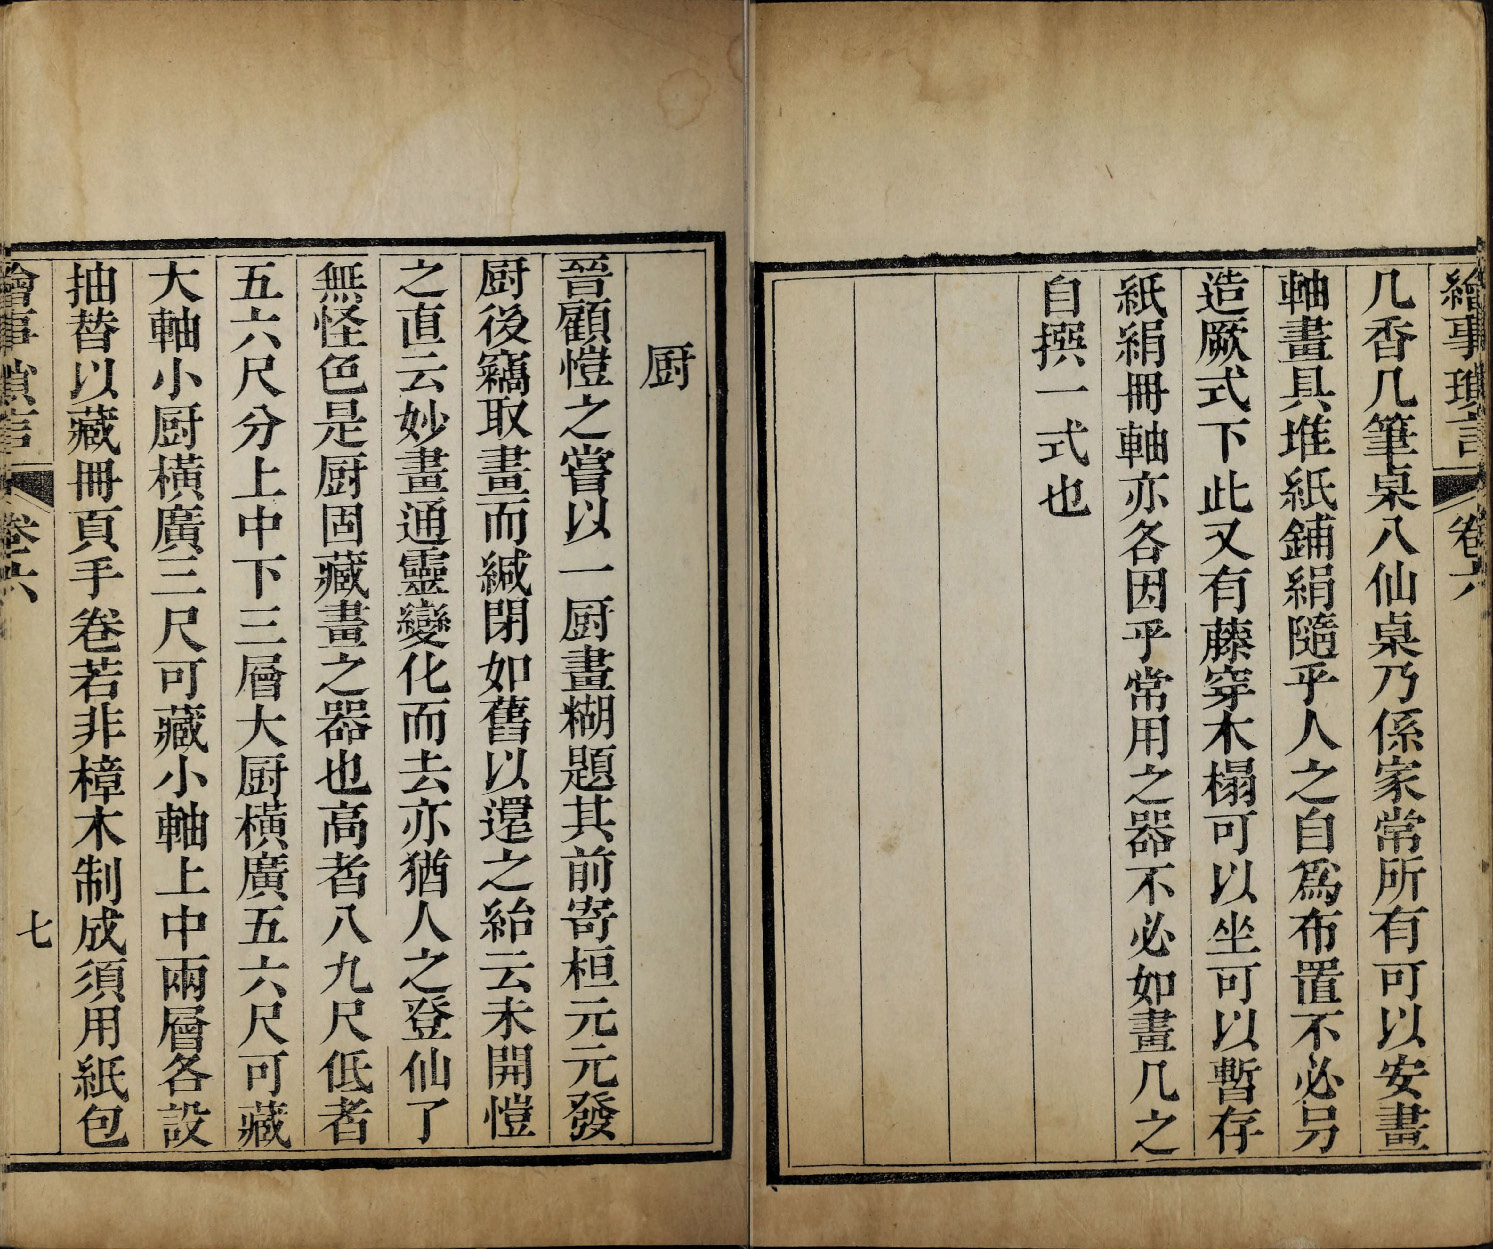 繪事瑣言 卷六
几香几筆桌八仙桌乃係家常所有可以安畫
軸畫具堆紙鋪絹隨乎人之自爲布置不必另
造厥式下此又有藤穿木榻可以坐可以暫存
紙絹冊軸亦各因乎常用之器不必如畫几之
自撰一式也
厨
晉顧愷之嘗以一厨畫糊題其前寄桓元元發
厨後竊取畫而緘閉如舊以還之紿云未開愷
之直云妙畫通靈變化而去亦猶人之登仙了
無怪色是厨固藏畫之器也高者八九尺低者
五六尺分上中下三層大厨橫廣五六尺可藏
大軸小厨橫廣三尺可藏小軸上中兩層各設
抽替以藏冊頁手卷若非樟木制成須用紙包
繪事瑣言 卷六 七